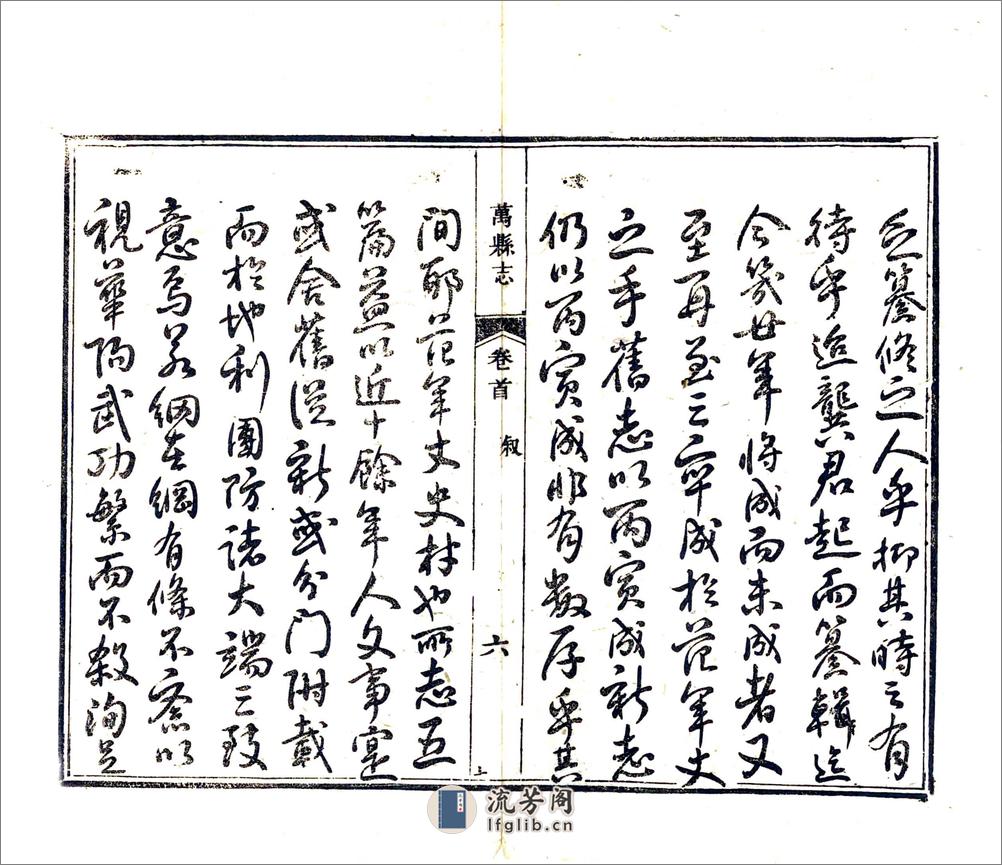 之纂修之人乎抑其時之有
待乎迨龔君起而纂輯迄
今幾廿年將成而未成者又
至再至三卒成於范年丈
之手舊志以丙寅成新志
仍以丙寅成非有數存乎其
萬縣志
卷首
叙
六
間耶范年丈史材也所志五
篇益以近十餘年人文事寔
或舍舊從新或分門附載
而於地利團防諸大端三致
意焉若網在綱有條不紊以
視華陽武功繁而不殺洵足
流芳阁
lfglib.cn